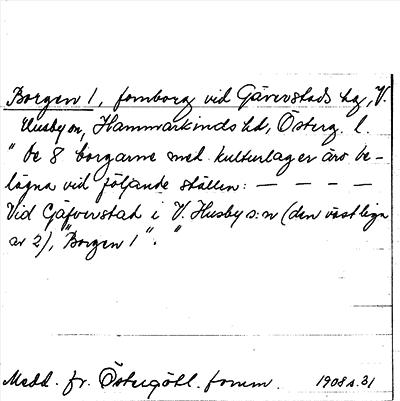 Borgen 1, fornborg vid Gäverstads hg, V.
Husby sn, Hammarkinds hd, Österg. l.
" De 8 borgarne med kulturlager äro be-
lägna vid följande ställen: — — — —
Vid Gäfverstad i V. Husby s:n (den västliga
av 2), "Borgen 1". "
Medd. fr. Östergötl. fornm. 1908 s. 31